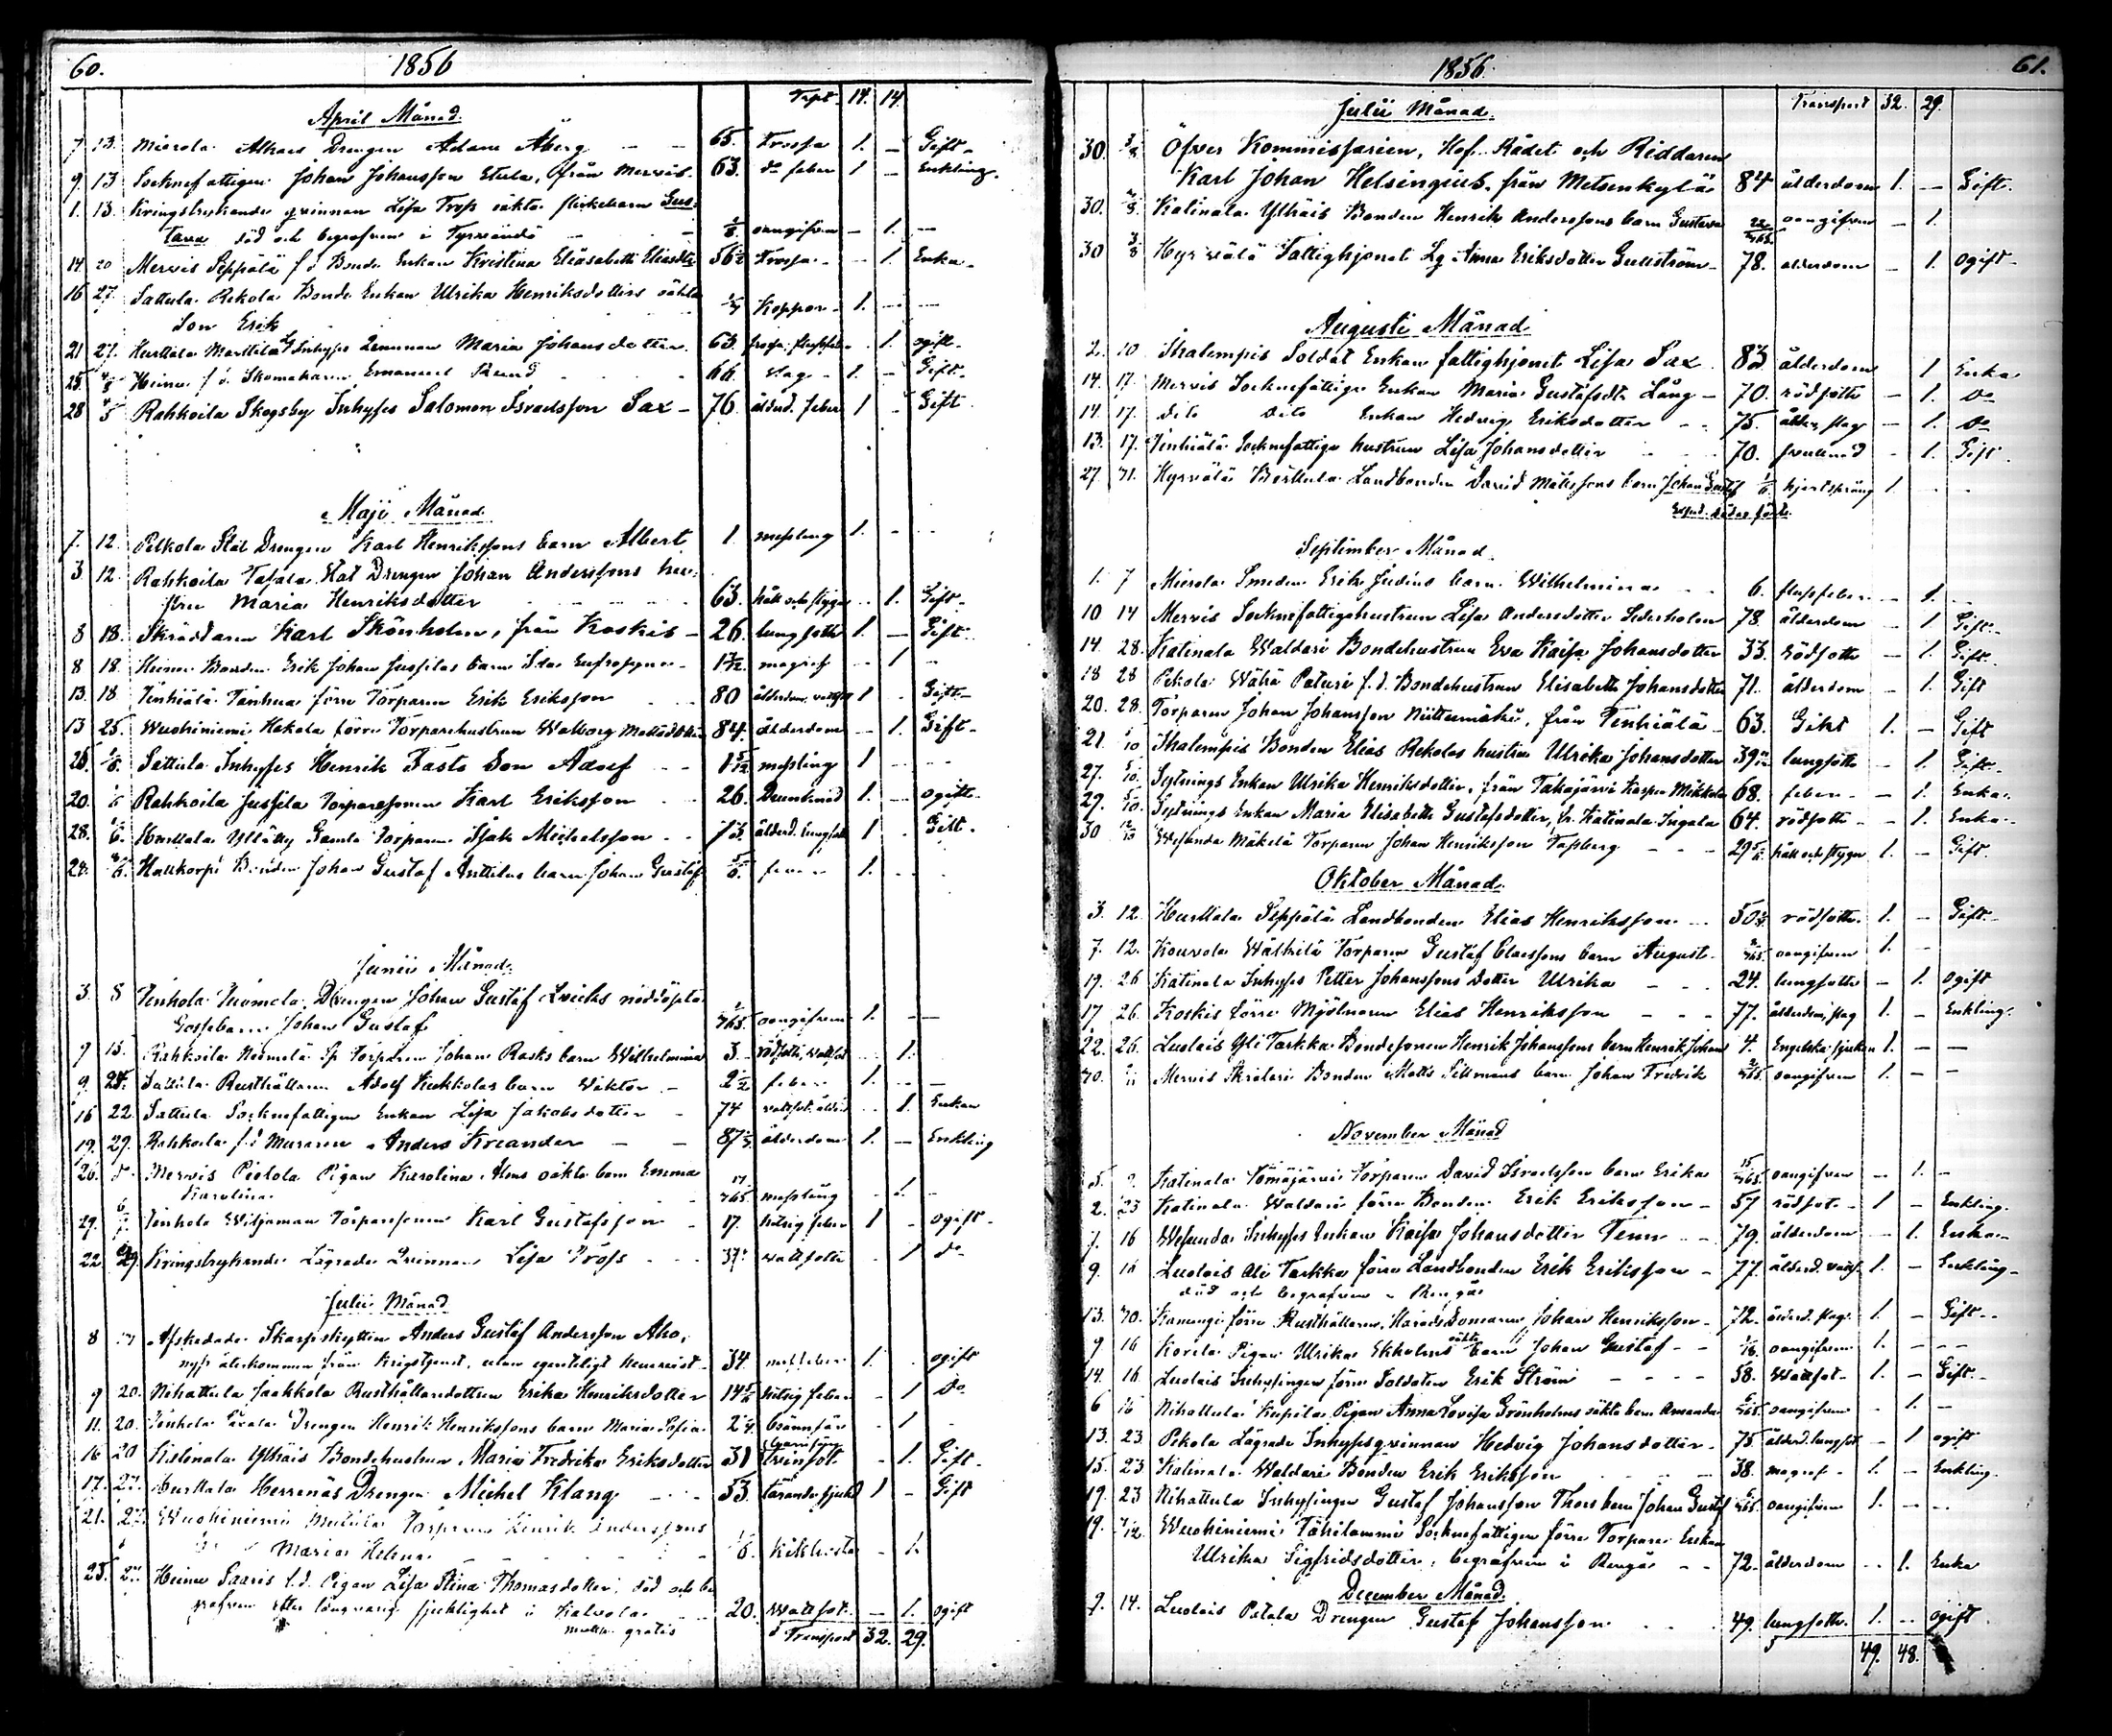 60. 1856
Trpt. 14. 14.
April Månad.
7 13. Mierola Alhais Drengen Adam Åberg 65. Frossa 1. — Gift
9. 13 Socknefattigen Johan Johansson Etula, från Mervis. 63. do feber 1 — Enkling.
1. 13. Kringstrykande qvinnan Lisa Tross oäkta flickebarn Gus-
tava död och begrafven i Tyrvändö oangifven — 1. —
14 20 Mervis Seppälä f.d. Bonde Enkan Kristina Eliasabeth Eliasdr 56 1/2 Frossa — 1. Enka
16 27. Sattula Rekola Bonde Enkan Ulrika Henriksdotters oäkta
Son Erik Koppor 1.
21 27. Hurttala Marttila Inhyses Qvinnan Maria Johansdotter 63. 1. ogift
25. 4/5 Heinu f.d. Skomakaren Emanuel Strand 66. slag 1. — Gift
28 4/5 Rahkoila Skogsby Inhyses Salomon Israelsson Sax — 76. ålderd. feber 1 Gift
Maji Månad
7. 12. Pelkola Stat Drengen Karl Henrikssons barn Albert 1. messling 1.
3. 12. Rahkoila Tafala Stat Drengen Johan Anderssons hu-
stru Maria Henriksdotter 63. håll och stygn 1. Gift
8 18. Skräddaren Karl Skönholm, från Koskis — 26. lungsott 1. — Gift
8 18. Heinu Bonden Erik Johan Jussilas barn Ida Eufrosyne magref 1
13. 18 Tenhiälä Tanhua förre Torparen Erik Eriksson 80 ålderdom 1 Gift
13 25. Wuohiniemi Hakola förre Torparehustrun Walborg Mattsdotter 84. ålderdom 1. Gift
26. 1/6. Sattula Inhyses Henrik Fasts Son Adolf 1 5/12 messling 1
20. 1/6 Rahkoila Jussila Torparesonen Karl Eriksson 26. Drunknad 1. ogift
28. 1/6. Hurttala Yllätty Gamla Torparen Isak Michelsson 73. ålderd. lungsot 1 Gift
24. Hattkorpi Bonden Johan Gustaf Anttilas barn Johan Gustaf 1.
Junii Månad.
3. 8 Tenhola Tuomela Drengen Johan Gustaf Qvicks nöddöpta
Gossebarn Johan Gustaf /365. oangifven 1.
9 15. Rahkoila Niemelä Sp Torparen Johan Rasks barn Wilhelmina 3. 1.
9. 24. Sattula Rusthållaren Adolf Kukkolas barn Wiktor feber 1.
16 22 Sattula Socknefattigen Enkan Lisa Jakobsdotter 74 1. Enkan
19. 29. Rahkoila f.d. Muraren Anders Kreander 87 ålderdom 1. — Enkling
26. Mervis Pietola Pigan Karolina oäkta barn Emma
Karolina /365. messling 1.
29. 6/7 Tenhola Wiljaman Torparesonen Karl Gustafsson 17. hetsig feber 1 ogift
22 Kringstrykande Lägrade Qvinnan Lisa Tross 37. wattsott 1 do
Julii Månad
8 Afskedade Skarpskytten Anders Gustaf Andersson Aho,
nyss återkommen från Krigstjenst, utan egenteligt hemvist 34. 1. ogift
9 20. Nihattula Jaakkola Rusthållaredottren Erika Henriksdotter 14 hetsig feber 1 Do
11. 20. Tenhola Drengen Henrik Henrikssons barn Maria Sofia 2 1
16 20 Katinala Ylhäis Bondehustrun Maria Fredrika Eriksdotter 31 1. Gift
17. 27. Hurttala Herrenäs Drengen Michel Klang 53. tärande sjukd 1 Gift
21. 27. Wuohiniemi Torparen Henrik Anderssons
Maria Helena kikhosta 1.
25. Heinu Saaris f.d. Pigan Lisa Stina Thomasdotter, död och be-
grafven efter långvarig sjuklighet i Kalvola 20. wattsot 1. ogift
gratis
Transport 32. 29.
1856. 61.
Transport 32. 29.
Julii Månad.
30. 3/8 Öfver Kommissarien, Hof Rådet och Riddaren
Karl Johan Helsingius från Metsenkylä 84 ålderdom 1. — Gift.
30. 3/8. Katinala Ylhäis Bonden Henrik Anderssons barn Gustava 22/365. oangifven 1.
30 3/8 Hyrvälä Fattighjonet Lg Anna Eriksdotter Gullström 78. ålderdom 1. ogift
Augusti Månad
2. 10 Ihalempis Soldat Enkan fattighjonet Lisa Sax 83 ålderdom 1 Enka
14. 17. Mervis Socknefattige Enkan Maria Gustafsdt. Lång 70. rödsott — 1. Do
14. 17. dito dito Enkan Hedvig Eriksdotter 75. ålder, slag — 1. Do
13. 17. Tenhiälä Socknefattige hustrun Lisa Johansdotter 70. 1. Gift
27. 31. Hyrvälä Perttula Landbonden David Mattssons barn Johan Gustaf hjertsprång 1.
September Månad
1. 7 Mierola Smeden Erik Judins barn Wilhelmina 6. 1.
10 14 Mervis Socknefattigehustrun Lisa Andersdotter Sederholm 78. ålderdom — 1 Gift
14. 28. Katinala Waldari Bondehustrun Eva Kaisa Johansdotter 33. rödsott — 1. Gift.
18 28 Pekola Wähä Paturi f.d. Bondehustrun Elisabeth Johansdotter 71. ålderdom — 1. Gift
20. 28. Torparen Johan Johansson Niittumäki, från Tenhiälä 63. Gikt 1. — Gift
21. 5/10 Ihalempis Bonden Elias Rekolas hustru Ulrika Johansdotter 39 lungsott — 1. Gift.
27. 5/10. Sytnings Enkan Ulrika Henriksdotter, från Takajärvi Kaspu Mikkola 68. feber — 1. Enka.
29. 5/10. Sytnings Enkan Maria Elisabeth Gustafsdotter, fr. Katinala Ingala 64. rödsott 1. Enka.
30 12/10 Wesunda Mäkelä Torparen Johan Henriksson Tassberg 29 håll och stygn 1. — Gift.
Oktober Månad.
3. 12. Hurttala Seppälä Landbonden Elias Henriksson 50 rödsott. 1. — Gift.
7. 12. Kouvola Wälkilä Torparen Gustaf Claessons barn August /365. oangifven 1. —
19. 26 Katinala Inhyses Petter Johanssons dotter Ulrika 24. lungsott — 1. ogift
17 26. Koskis förre Mjölnaren Elias Henriksson 77. ålderdom, slag 1. — Enkling.
22. 26. Luolais Yli Tarkka Bondesonen Henrik Johanssons barn Henrik Johan 4. Engelska sjukan 1. — —
30. Mervis Skräläri Bonden Matts Sillmans barn Johan Fredrik /365. oangifven 1. — —
November Månad
5. 9. Katinala Tömäjärvi Torparen David Israelsson barn Erika 15/365. oangifven 1. —
2. 23 Katinala Waldari förre Bonden Erik Eriksson 57 rödsot 1 — Enkling.
7. 16 Wesunda Inhyses Enkan Kaisa Johansdotter Tenn 79 ålderdom 1. Enka
9. 16 Luolais Ali Tarkka förre Landbonden Erik Eriksson 77. 1. — Enkling
död och begrafven i Rengås
13. 30. Kanungi förre Rusthållaren, Härads Domaren Johan Henriksson 72. ålderd. slag. 1. — Gift
9 16 Karela Pigan Ulrika Ekholms oäkta barn Johan Gustaf oangifven 1.
14. 16 Luolais Inhysingen förre Soldaten Erik Ström 58. Wattsot 1. — Gift.
6 16 Nihattula Kupila Pigan Anna Lovisa Grönholms oäkta barn Amanda /365. oangifven 1. —
13. 23. Pekola Lägrade Inhysesqvinnan Hedvig Johansdotter 75. ålderd. lungsot — 1 ogift
15. 23. Katinala Waldari Bonden Erik Eriksson 38. magref 1. — Enkling.
19. 23 Nihattula Inhysingen Gustaf Johansson Thors barn Johan Gustaf /365. oangifven 1.
19. 7/12. Wuohiniemi Tähilammi Socknefattigen förre Torpare Enkan
Ulrika Sigfridsdotter, begrafven i Rengås 72. ålderdom 1. Enka
December Månad.
9. 14. Luolais Patala Drengen Gustaf Johansson 49. lungsott. 1. ogift
49. 48.